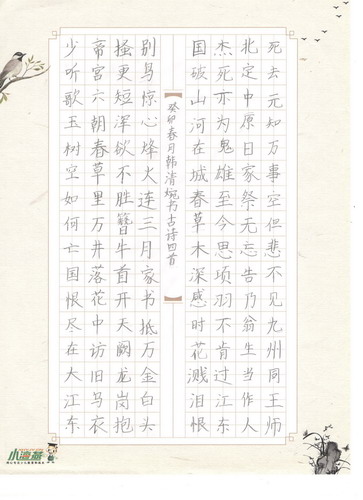 死去元知万事空但悲不见九州同王师
北定中原日家祭无忘告乃翁生当作人
杰死亦为鬼雄至今思项羽不肯过江东
国破山河在城春草木深感时花溅泪恨
癸卯春月韩清婉书古诗四首
别鸟惊心烽火连三月家书抵万金白头
搔更短浑欲不胜簪牛首开天阙龙岗抱
帝宫六朝春草里万井落花中访旧乌衣
少听歌玉树空如何亡国恨尽在大江东
小海燕